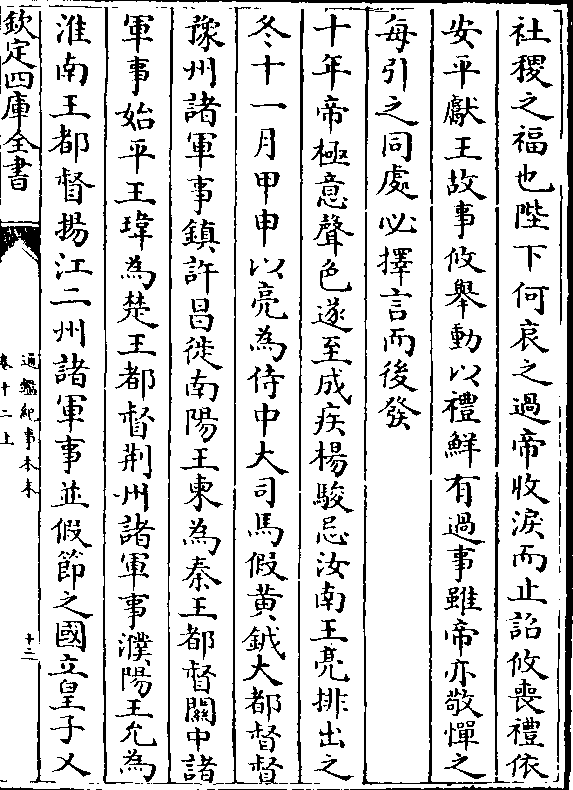 社稷之福也陛下何哀之過帝收淚而止詔攸喪禮依
安平獻王故事攸舉動以禮鮮有過事雖帝亦敬憚之
每引之同處必擇言而後發
十年帝極意聲色遂至成疾楊駿忌汝南王亮排出之
冬十一月甲申以亮為侍中大司馬假黃鉞大都督督
豫州諸軍事鎮許昌徙南陽王柬為秦王都督關中諸
軍事始平王瑋為楚王都督荆州諸軍事濮陽王允為
淮南王都督揚江二州諸軍事並假節之國立皇子乂
欽定四庫全書
通鑑紀事本末
卷十二上
十三